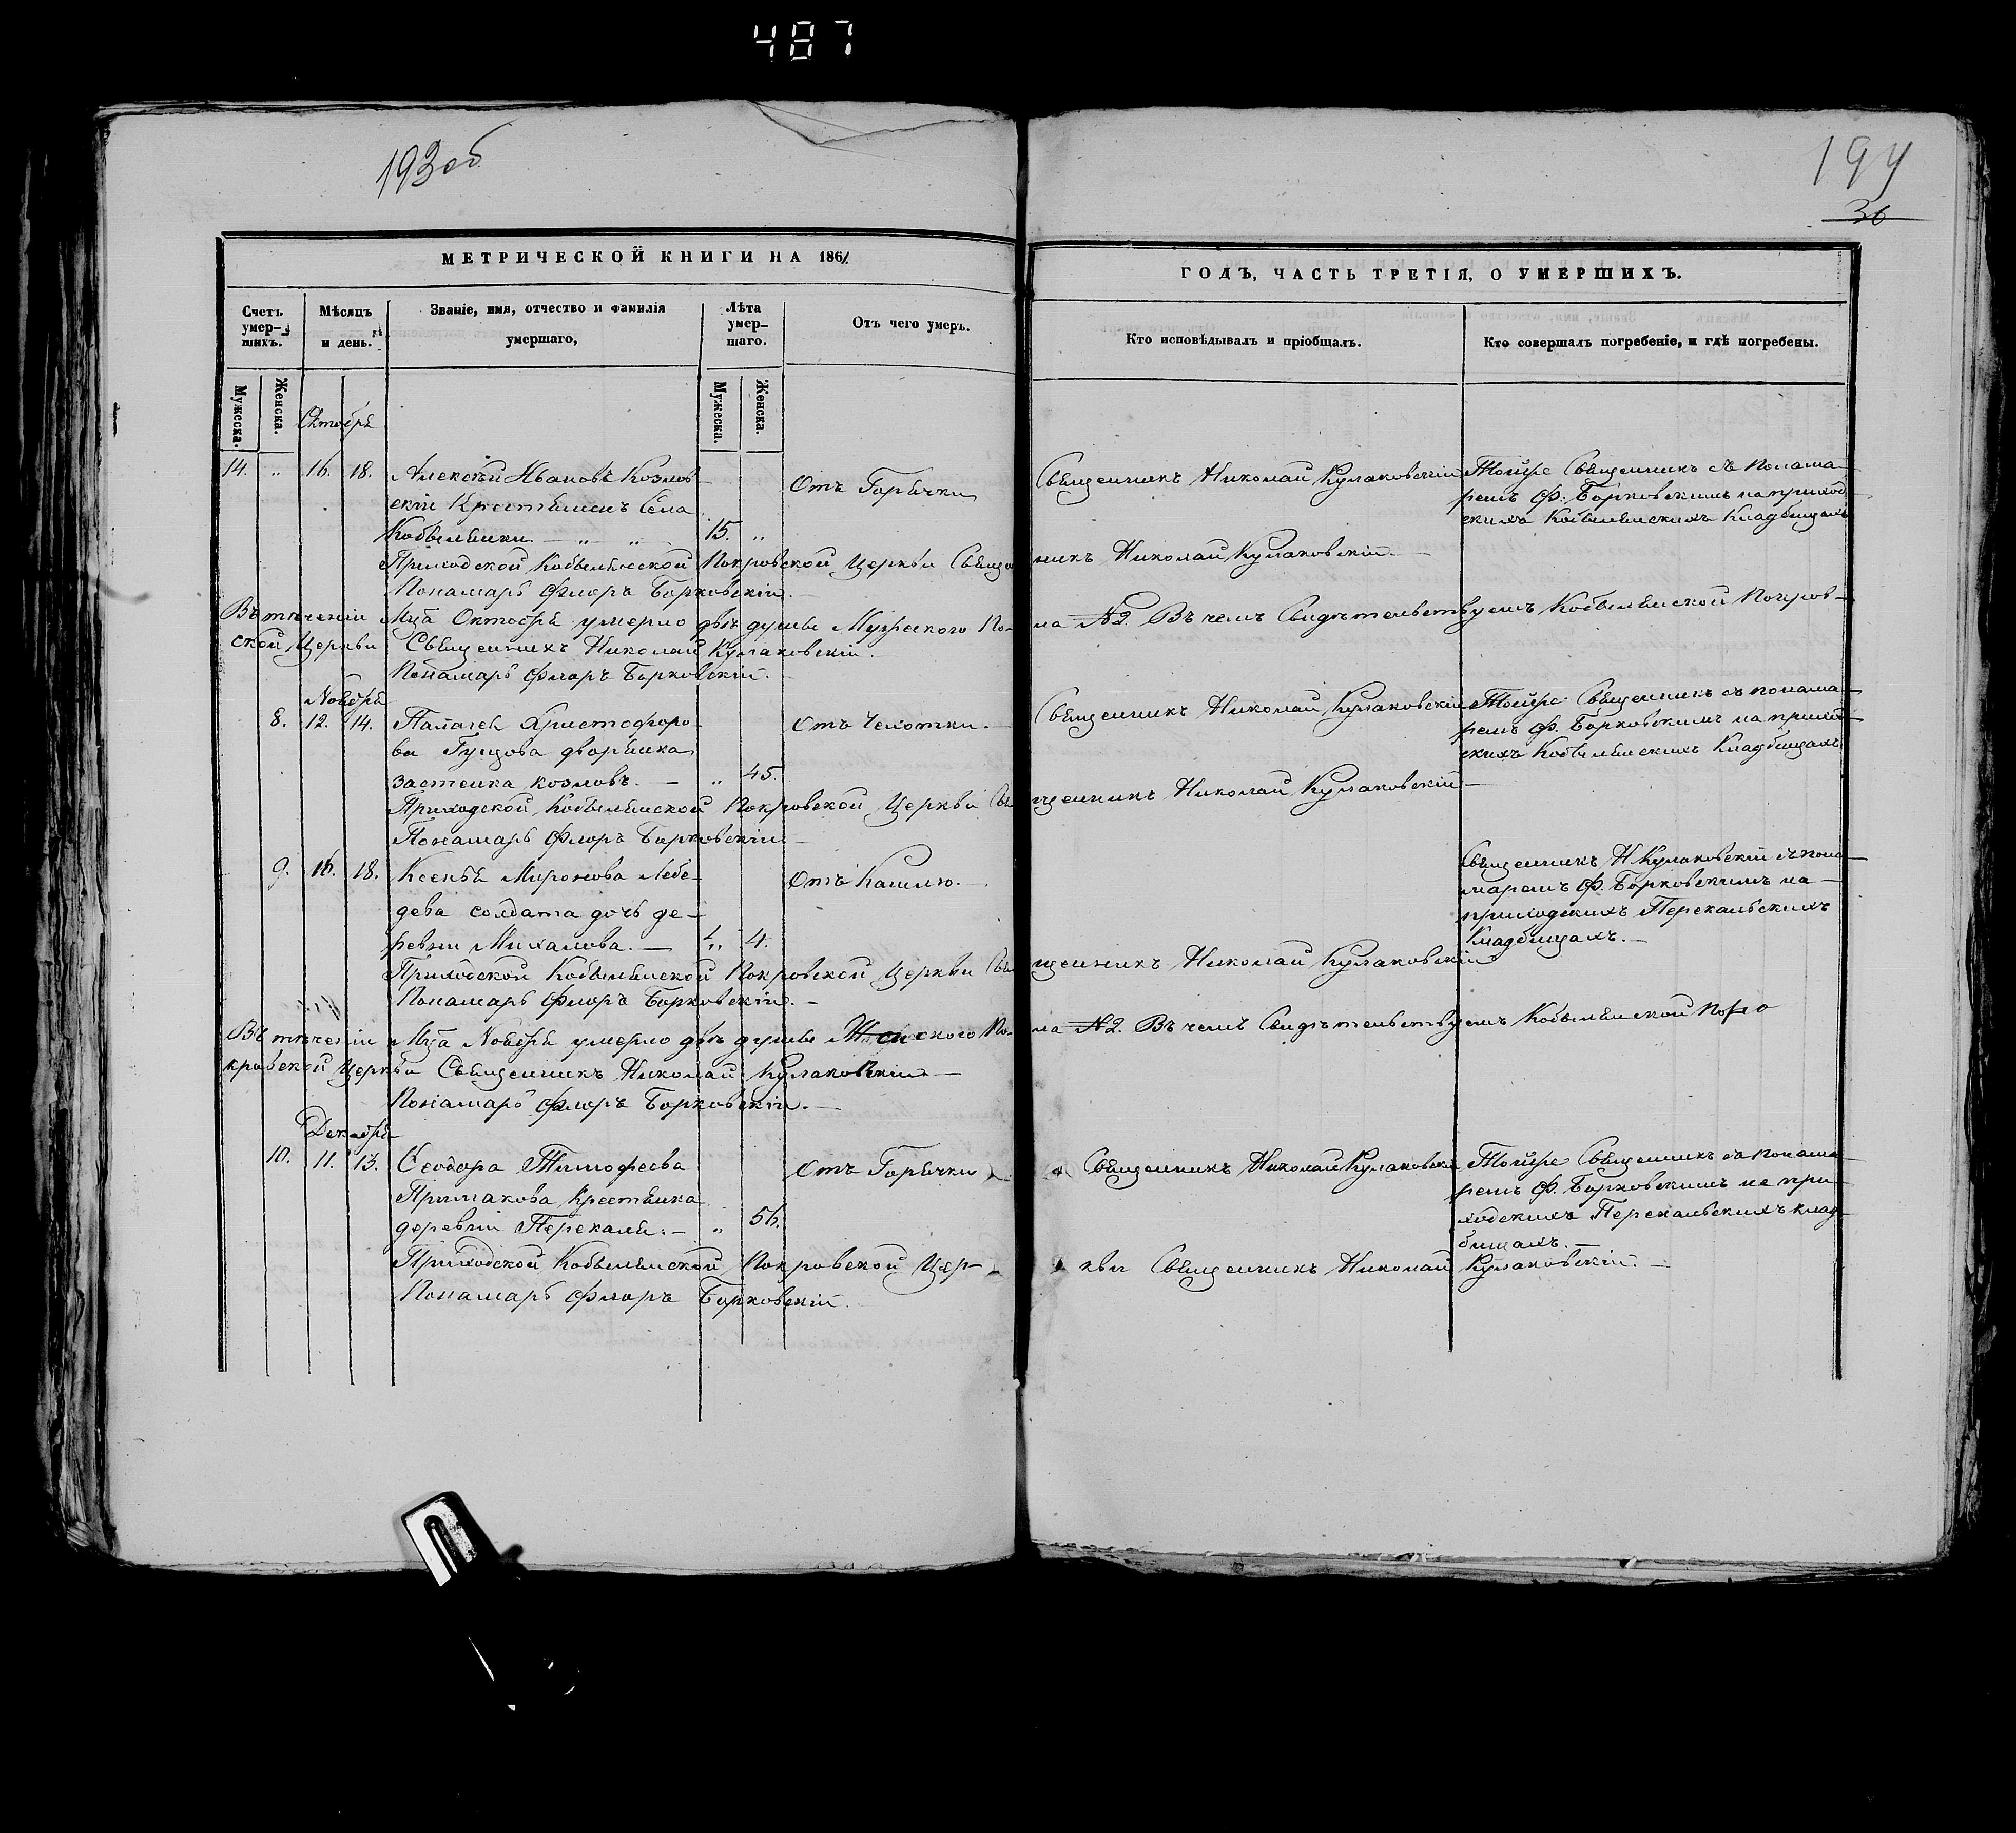 487
193об
194
36
МЕТРИЧЕСКОЙ КНИГИ НА 1861
ГОДЪ, ЧАСТЬ ТРЕТІЯ, О УМЕРШИХЪ.
Счетъ умер-шихъ.
Мѣсяцъ и день.
Званіе, имя, отчество и фамилія умершаго,
Лѣта умер-шаго.
Отъ чего умеръ.
Кто исповѣдывалъ и пріобщалъ.
Кто совершалъ погребеніе, и гдѣ погребены.
Мужеска.
Женска.
Мужеска.
Женска.
Октября
14. „ 16. 18. Алексѣй Ивановъ Козлов-
скій Крестьянинъ Села
Кобыльники. — „ „ 15. „
Отъ Горячки
Священникъ Николай Кулаковскій
Тойже Священникъ съ понама-
ремъ Ф. Борковскимъ на приход-
скихъ Кобыльнскихъ Кладбищахъ
Приходской Кобыльнской Покровской Церкви Священникъ Николай Кулаковскій. —
Понамарь Флоръ Борковскій. —
Въ теченіи Мца Октября умерло двѣ душы Мужескаго По-ла № 2. Въ чемъ Свидѣтельствуемъ Кобыльнской Покров-
ской Церкви Священникъ Николай Кулаковскій.
Понамарь Флоръ Борковскій. —
Ноября
8. 12. 14. Палагея Христофоро-
ва Гуцова дворянка
застенка козловъ. — „ 45.
Отъ Чехотки. —
Священникъ Николай Кулаковскій
Тойже Священникъ съ понама-
ремъ Ф. Борковскимъ на приход-
скихъ Кобыльнскихъ Кладбищахъ
Приходской Кобыльнской Покровской Церкви Священникъ Николай Кулаковскій —
Понамарь Флоръ Борковскій —
9. 16. 18. Ксенія Миронова Лебе-
дева солдата дочь де-
ревни Михалова. — „ 4.
Отъ Кашлю. —
Священникъ Н Кулаковскій съ пона-
маремъ Ф. Борковскимъ на —
приходскихъ Перекальскихъ
Кладбищахъ. —
Приходской Кобыльнской Покровской Церкви Священникъ Николай Кулаковскій
Понамарь Флоръ Борковскій. —
Въ теченіи Мца Ноября умерло двѣ душы Женскаго По-ла № 2. Въ чемъ Свидѣтельствуемъ Кобыльнской По-
кровской Церкви Священникъ Николай Кулаковскій —
Понамарь Флоръ Борковскій. —
Декабря
10. 11. 13. Ѳеодора Тимофеева
Примакова Крестьянка
деревни Перекали. — „ 56.
Отъ Горячки
Священникъ Николай Кулаковскій
Тойже Священникъ съ понама-
ремъ Ф. Борковскимъ на при-
ходскихъ Перекальскихъ клад-
бищахъ. —
Приходской Кобыльнской Покровской Цер-кви Священникъ Николай Кулаковскій. —
Понамарь Флоръ Борковскій.